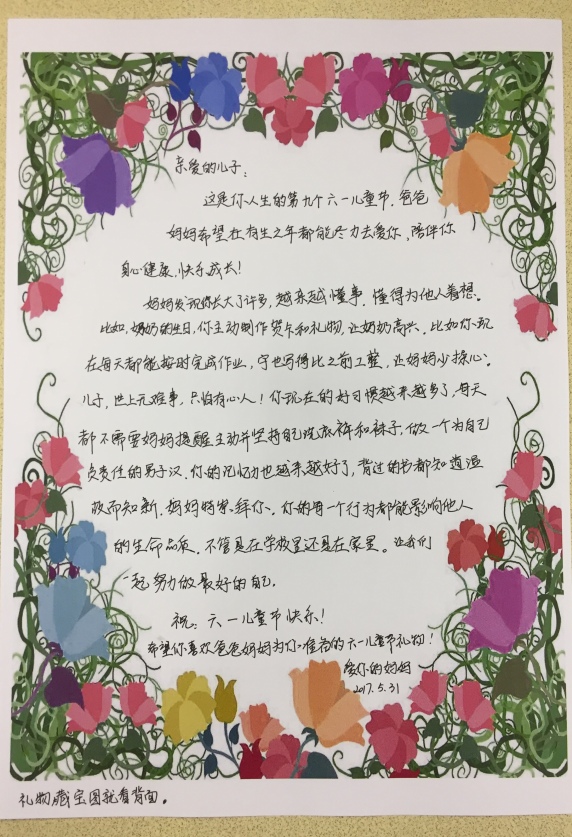 亲爱的儿子：
这是你人生的第九个六一儿童节，爸爸
妈妈希望在有生之年都能尽力去爱你，陪伴你
身心健康，快乐成长！
妈妈发现你长大了许多，越来越懂事，懂得为他人着想。
比如，奶奶的生日，你主动制作贺卡和礼物，让奶奶高兴。比如你现
在每天都能按时完成作业，字也写得比之前工整，让妈妈少操心。
儿子，世上无难事，只怕有心人！你现在的好习惯越来越多了，每天
都不需要妈妈提醒主动并坚持自己洗内裤和袜子，做一个为自己
负责任的男子汉。你的记忆力也越来越好了，背过的书都知道温
故而知新，妈妈特崇拜你。你的每一个行为都能影响他人
的生命品质，不管是在学校里还是在家里。让我们
一起努力做最好的自己。
祝：六一儿童节快乐！
希望你喜欢爸爸妈妈为你准备的六一儿童节礼物！
爱你的妈妈
2017.5.31
礼物藏宝图就看背面。